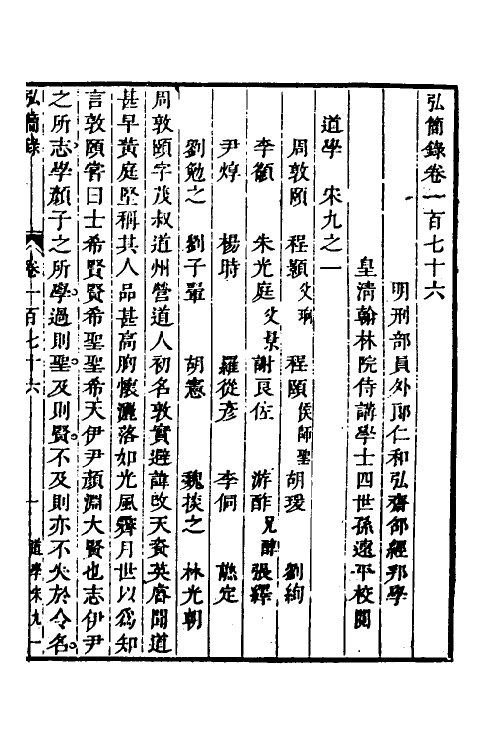 弘簡錄卷一百七十六
明刑部員外郎仁和弘齋邵經邦學
皇清翰林院侍講學士四世孫遠平校閱
道學　宋九之一
周敦頤　程顥父珦　程頤侯師聖　胡瑗　劉絢
李籲　朱光庭父景　謝良佐　游酢兄醇　張繹
尹焞　楊時　羅從彥　李侗　熊定
劉勉之　劉子翬　胡憲　魏掞之　林光朝
周敦頤字茂叔道州營道人初名敦實避諱改天資英睿聞道
甚早黃庭堅稱其人品甚高胸懷灑落如光風霽月世以為知
言敦頤嘗曰士希賢賢希聖聖希天伊尹顏淵大賢也志伊尹
之所志學顏子之所學過則聖及則賢不及則亦不失於令名
弘簡錄　卷一百七十六　一　道學宋九一